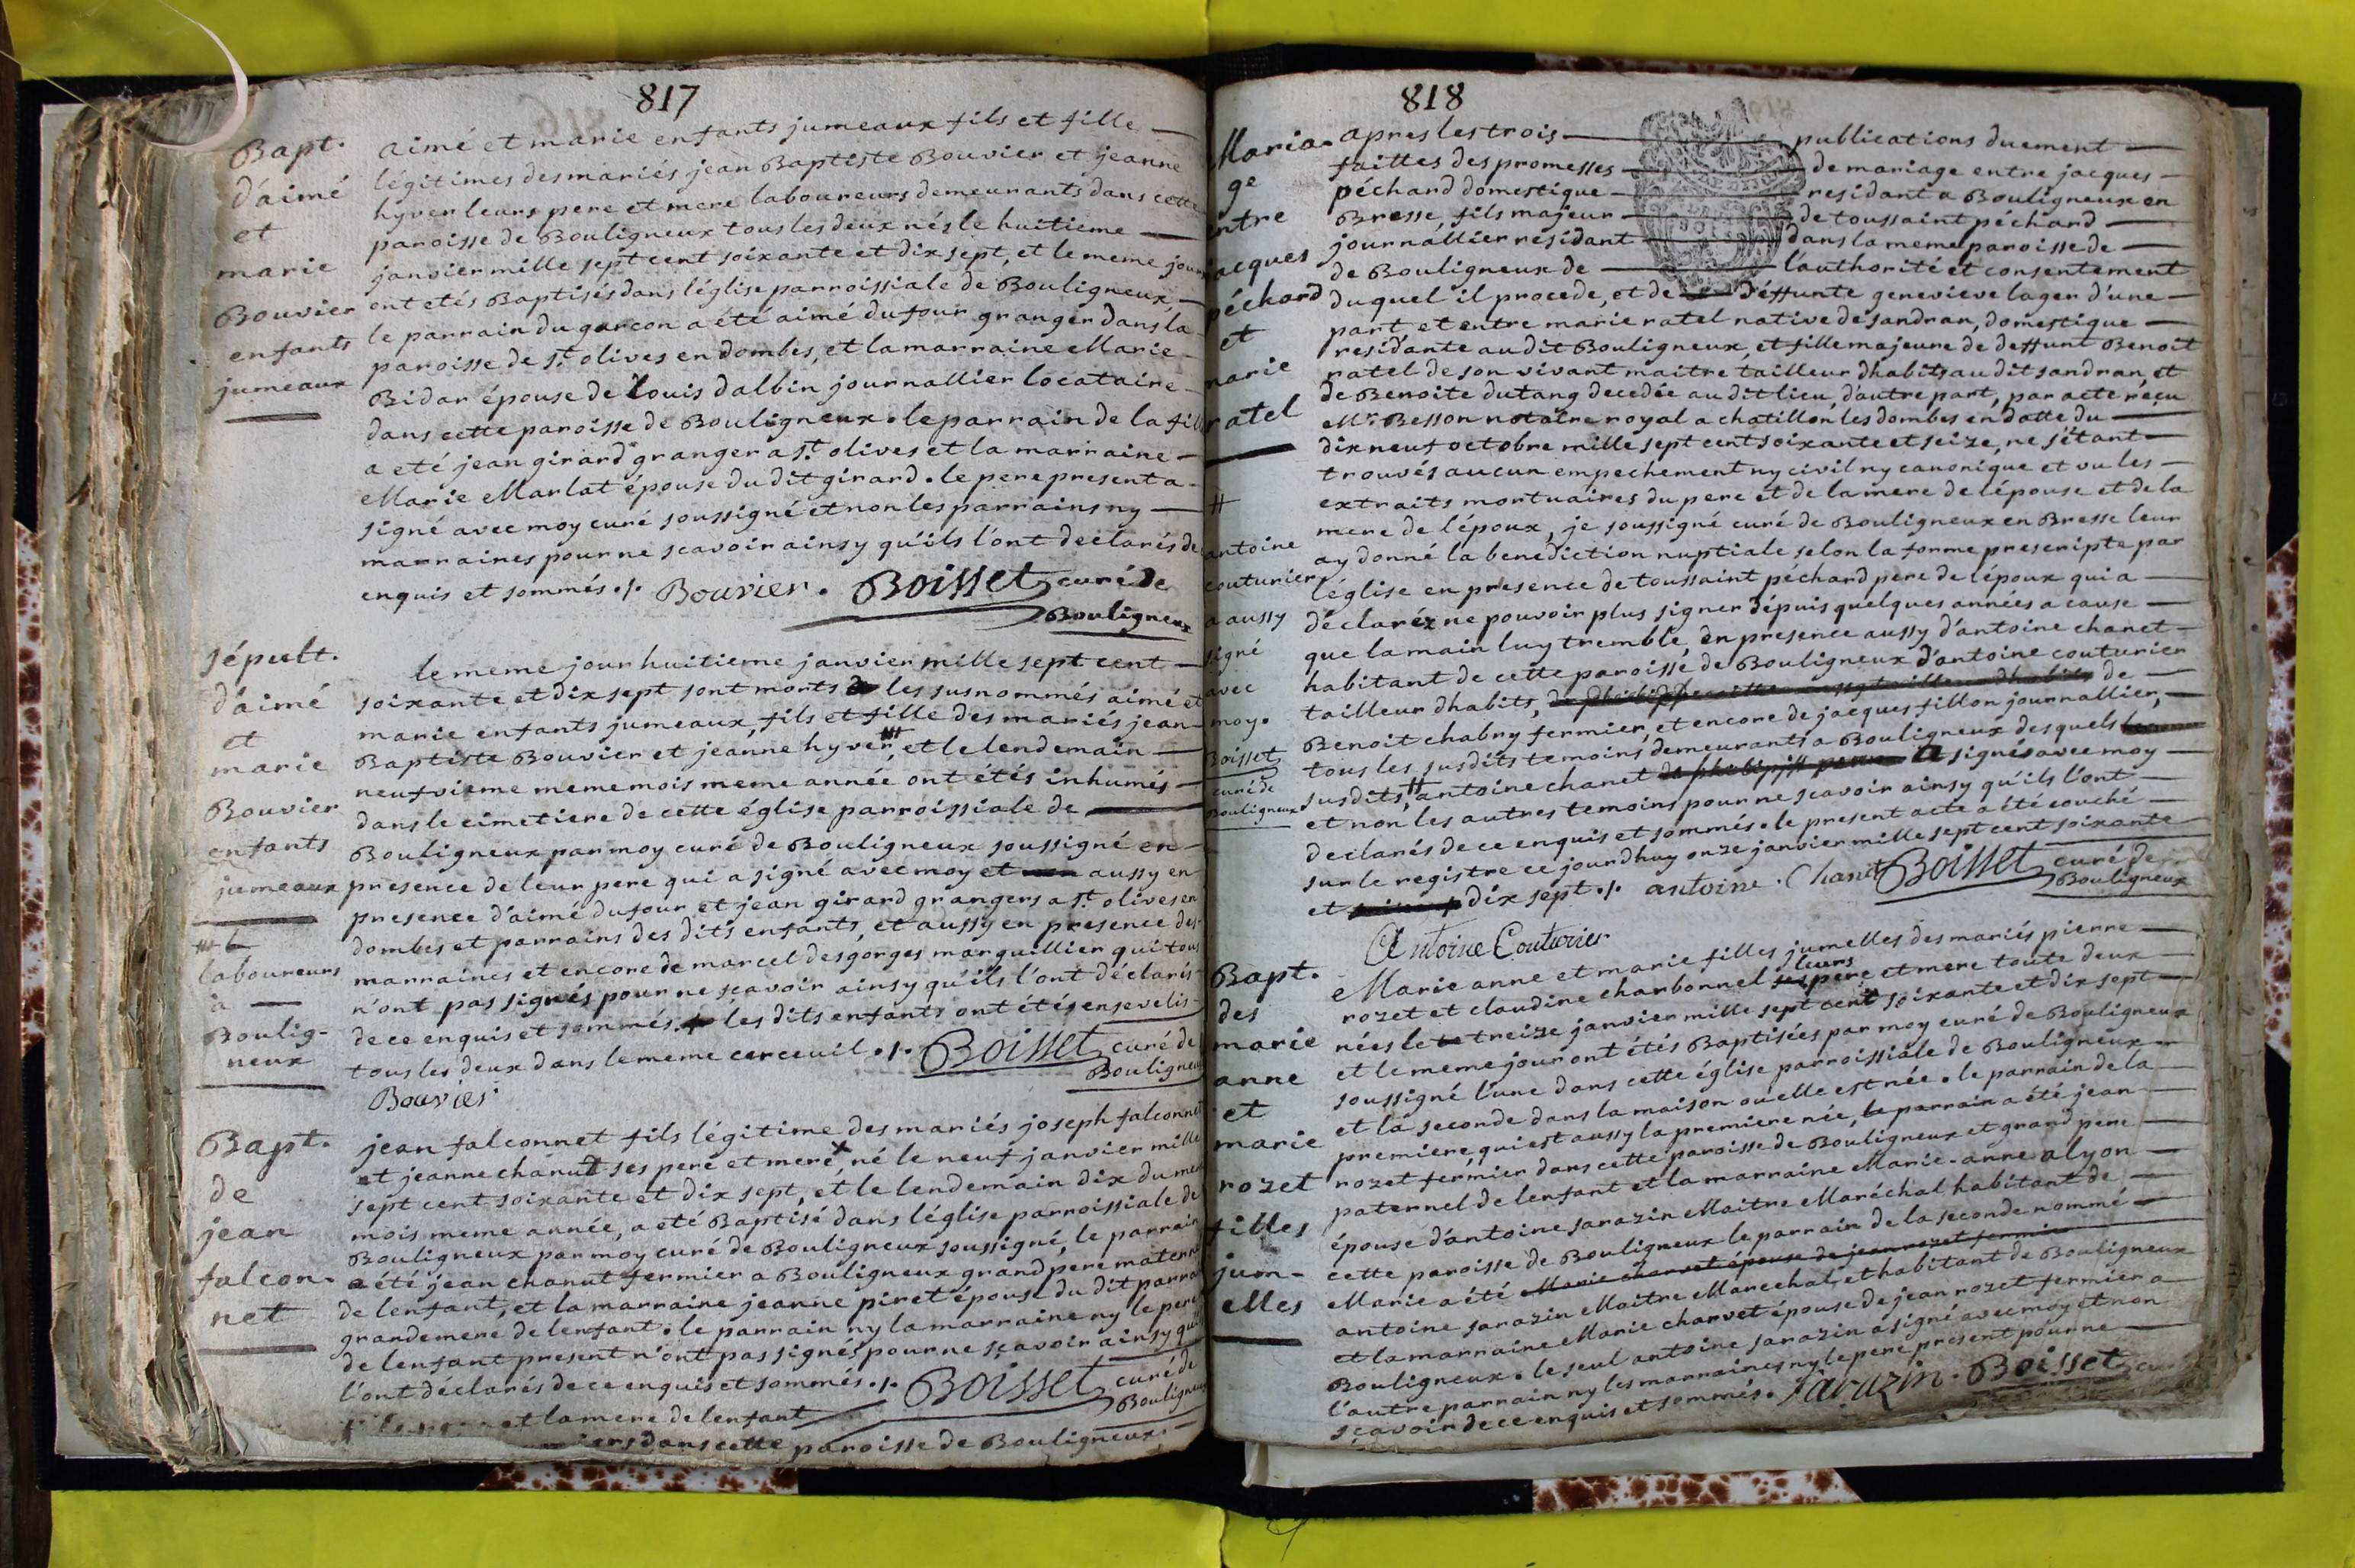 817
Bapt.
d'aimé
et
marie
Bouvier
enfants
jumeaux
aimé et marie enfants jumeaux fils et fille
légitimes des mariés jean Baptiste Bouvier et jeanne
hyver leurs pere et mere laboureurs demeurants dans cette
paroisse de Bouligneux tous les deux nés le huitieme
janvier mille sept cent soixante et dix sept, et le meme jour
ont etés Baptisés dans l'église parroissiale de Bouligneux,
le parrain du garcon a été aimé dufour granger dans la
paroisse de st. olives en dombes, et la marraine Marie
Bidar épouse de Louis dalbin journallier locataire
dans cette paroisse de Bouligneux. le parrain de la fille
a eté jean girard granger a st. olives et la marraine
Marie Marlat épouse du dit girard. le pere present a
signé avec moy curé soussigné et non les parrains ny
marraines pour ne scavoir ainsy qu'ils l'ont declarés de
enquis et sommés ./. Bouvier. Boisset curé de
Bouligneux
sépult.
d'aimé
et
marie
Bouvier
enfants
jumeaux
laboureurs
à
Boulig-
neux
le meme jour huitieme janvier mille sept cent
soixante et dix sept sont morts les susnommés aimé et
marie enfants jumeaux, fils et fille des mariés jean
Baptiste Bouvier et jeanne hyver, et le lendemain
neufvieme meme mois meme année ont étés inhumés
dans le cimetiere de cette église parroissiale de
Bouligneux par moy curé de Bouligneux soussigné en
presence de leur pere qui a signé avec moy et aussy en
presence d'aimé dufour et jean girard grangers a st. olives en
dombes et parrains des dits enfants, et aussy en presence des
marraines et encore de marcel desgorges marguillier qui tous
n'ont pas signés pour ne scavoir ainsy qu'ils l'ont déclarés
de ce enquis et sommés. les dits enfants ont étés ensevelis
tous les deux dans le meme cerceuil ./. Boisset curé de
Bouligneux
Bouvier
Bapt.
de
jean
falcon-
net
jean falconnet fils légitime des mariés joseph falconnet
et jeanne chanut ses pere et mere, né le neuf janvier mille
sept cent soixante et dix sept, et le lendemain dix du meme
mois meme année, a eté Baptisé dans l'église parroissiale de
Bouligneux par moy curé de Bouligneux soussigné, le parrain
a été jean chanut fermier a Bouligneux grand pere maternel
de lenfant, et la marraine jeanne piret épouse du dit parrain
grandemere de lenfant. le parrain ny la marraine ny le pere
de lenfant present n'ont pas signés pour ne sçavoir ainsy qu'ils
l'ont déclarés de ce enquis et sommés ./. Boisset curé de
Bouligneux
et la mere de lenfant
dans cette paroisse de Bouligneux
818
Maria-
ge
entre
jacques
péchard
et
marie
ratel
antoine
couturier
a aussy
signé
avec
moy.
Boisset
curé de
Bouligneux
apres les trois publications duement
faittes des promesses de mariage entre jacques
péchard domestique residant a Bouligneux en
Bresse, fils majeur de toussaint péchard
journallier résidant dans la meme paroisse de
de Bouligneux de l'authorité et consentement
duquel il procede, et de d'effunte genevieve lager d'une
part, et entre marie ratel native de sandran, domestique
residante au dit Bouligneux, et fille majeure de deffunt Benoit
ratel de son vivant maitre tailleur dhabits au dit sandran, et
de Benoite dutang decedée au dit lieu, d'autre part, par acte réçu
Mr. Besson notaire royal a chatillon les dombes en datte du
dix neuf octobre mille sept cent soixante et seize, ne s'étant
trouvés aucun empechement ny civil ny canonique et vu les
extraits mortuaires du pere et de la mere de lépouse et de la
mere de l'époux, je soussigné curé de Bouligneux en Bresse leur
ay donné la benediction nuptiale selon la forme prescripte par
l'église en presence de toussaint péchard pere de lépoux qui a
déclaréz ne pouvoir plus signer dépuis quelques années a cause
que la main luy tremble, en presence aussy d'antoine chanet
habitant de cette paroisse de Bouligneux d'antoine couturier
tailleur dhabits, de
Benoit chabry fermier, et encore de jacques fillon journallier,
tous les susdits temoins demeurants a Bouligneux desquels
susdits, antoine chanet a signés avec moy
et non les autres temoins pour ne scavoir ainsy qu'ils l'ont
declarés de ce enquis et sommés. le present acte a été couché
sur le registre ce jourdhuy onze janvier mille sept cent soixante
et dix sept ./. antoine. Chanet Boisset curé de
Bouligneux
Antoine Couturier
Bapt.
des
marie
anne
et
marie
rozet
filles
jum-
elles
Marie anne et marie filles jumelles des mariés pierre
rozet et claudine charbonnel leurs pere et mere toute deux
nées le treize janvier mille sept cent soixante et dix sept
et le meme jour ont étés Baptisées par moy curé de Bouligneux
soussigné l'une dans cette église parroissiale de Bouligneux
et la seconde dans la maison ou elle est née. le parrain de la
premiere qui est aussy la premiere née, le parrain a été jean
rozet fermier dans cette paroisse de Bouligneux et grand pere
paternel de lenfant et la marraine Marie-anne alyon
épouse d'antoine sarazin Maitre Maréchal habitant de
cette paroisse de Bouligneux le parrain de la seconde nommé
Marie a été Marie charvet épouse de jean rozet fermier
antoine sarazin Maitre Marechal, et habitant de Bouligneux
et la marraine Marie charvet épouse de jean rozet fermier a
Bouligneux. le seul antoine sarazin a signé avec moy et non
l'autre parrain ny les marraines ny le pere present pour ne
sçavoir de ce enquis et sommés. Sarazin. Boisset